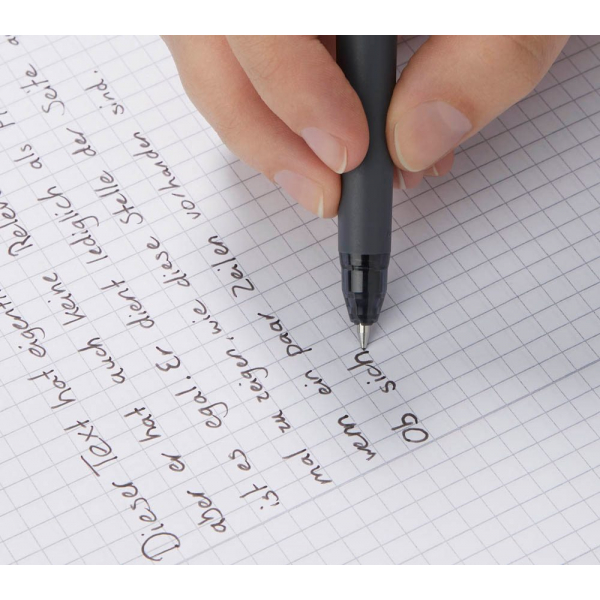 Dieser Text hat eigentl
aber er hat auch keine Relev
ist es egal. Er dient lediglich als
mal zu zeigen, wie diese Stelle der Seite
wem ein paar Zeilen vorhanden sind.
Ob sich